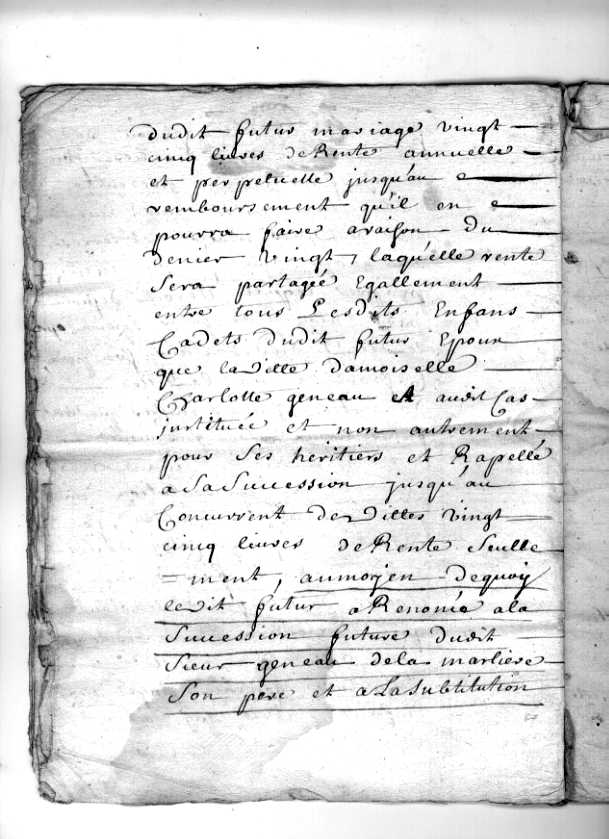 dudit futur mariage vingt
cinq livres de Rente annuelle
et perpetuelle jusqu'au
remboursement qu'il en
pourra faire a raison du
denier vingt, laquelle rente
sera partagée Egallement
entre tous Lesdits Enfans
Cadets dudit futur Epoux
que ladille damoiselle
Charlotte geneau A audit Cas
justituée et non autrement
pour ses heritiers et Rapellé
a sa Succession jusqu'au
Concurrent desdittes vingt
cinq livres de Rente seulle
=ment, aumoyen dequoy
ledit futur a Renoncé a la
Succession future dudit
Sieur geneau de la marliere
Son pere et a La subtitution